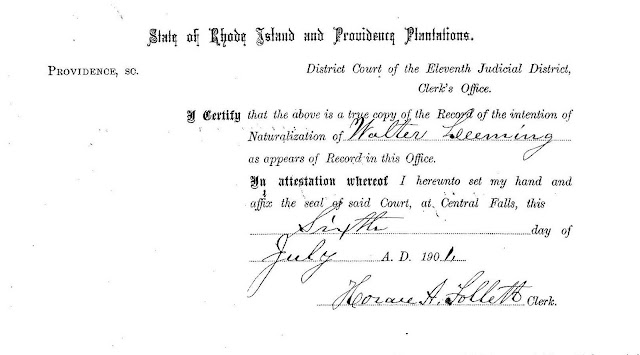 State of Rhode Island and Providence Plantations.
PROVIDENCE, SC.
District Court of the Eleventh Judicial District,
Clerk's Office.
I Certify that the above is a true copy of the Record of the intention of
Naturalization of Walter Leeming
as appears of Record in this Office.
In attestation whereof I hereunto set my hand and
affix the seal of said Court, at Central Falls, this
Sixth day of
July A. D. 1901.
Horace A. Follett Clerk.